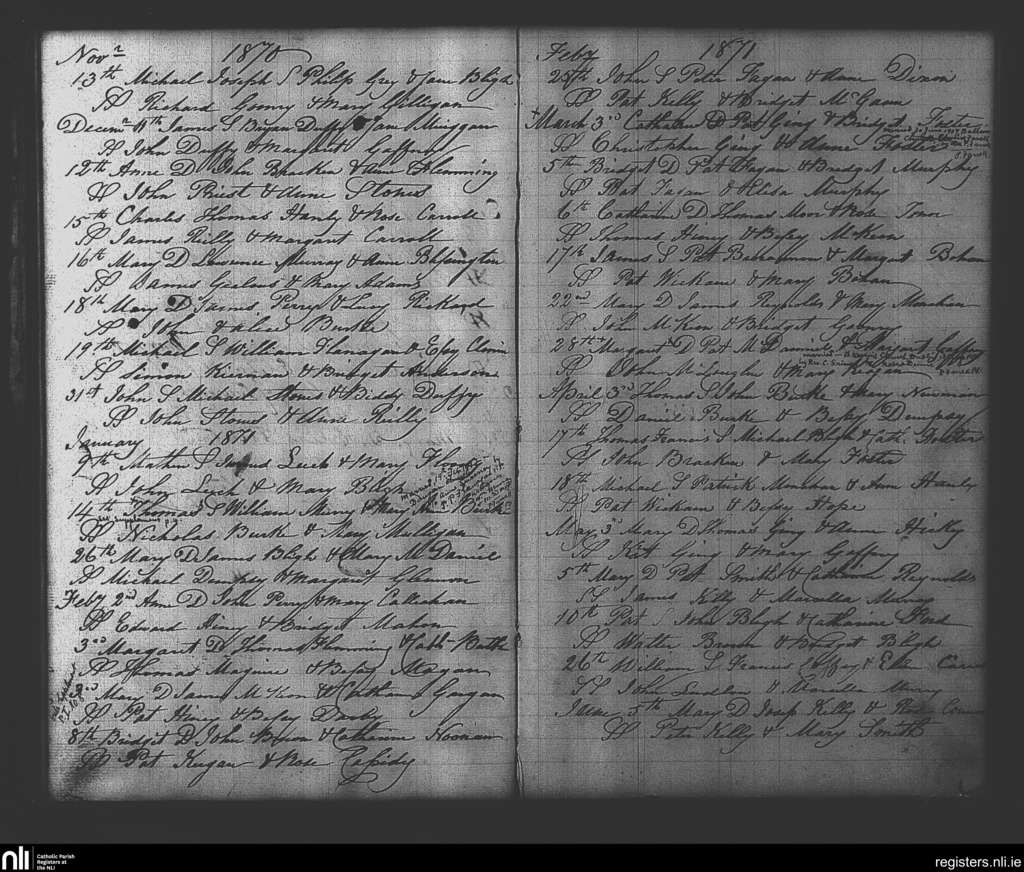 Novr 1870
13th Michael Joseph S Philip Grey & Jane Bligh
SS Richard Goonry & Mary Gilligan
Decemr 11th James S Bryan Duffy & Jane
SS John Duffy & Margaret Gaffney
12th Anne D John Bracken & Anne Flemming
SS John Priest & Anne Stones
15th Charles Thomas Hanly & Rose Carroll
SS James Reilly & Margaret Carroll
16th Mary D Lawrence Murray & Anne
SS James & Mary Adams
18th Mary D James Perry & Lucy Rickard
SS John & Alice Burke
19th Michael S William Flanagan & Essy
SS Simon Kiernan & Bridget Anderson
31st John S Michael Stones & Biddy Duffy
SS John Stones & Anne Reilly
January 1871
9th Mathew S James Leech & Mary
SS John Lych & Mary Bligh
14th Thomas S William Murry & Mary Burke
SS Nicholas Burke & Mary Mulligan
26th Mary D James Bligh & Mary McDaniel
SS Michael Dempsy & Margaret Glennon
Feby 2nd Anne D John Perry & Mary Callaghan
SS Edward Hiney & Bridget Mahon
3rd Margaret D Thomas Flemming & Cath
SS Thomas Maguire & Bessy Magan
Mary D James McKeon & Catherine Gavigan
SS Pat Hiney & Bessy Darby
8th Bridget D John Brown & Catherine Noonan
SS Pat Keegan & Rose Cassidy
Feby 1871
25th John S Peter Fagan & Anne Dixon
SS Pat Kelly & Bridget McGann
March 3rd Catherine D Pat Ging & Bridget Foster
SS Christopher Ging & Anne Foster
5th Bridget D Pat Fagan & Bridget Murphy
SS Pat Fagan & Elisa Murphy
6th Catherine D Thomas Moor & Rose
SS Thomas Hiney & Bessy McKeon
17th James S Pat & Margaret Bohan
SS Pat Wickam & Mary Bohan
22nd Mary D James Reynolds & Mary Monahan
SS John McKeon & Bridget Goonry
28th Margaret D Pat McDannell & Margaret Gaffney
SS John & Mary Keegan
April 3rd Thomas S John Burke & Mary Newman
SS Daniel Burke & Bessy Dempsy
17th Thomas Francis S Michael Bligh & Cath. Foster
SS John Bracken & Mary Foster
18th Michael S Patrick Monahan & Ann Hanly
SS Pat Wickam & Bessy Hope
May 3rd Mary D Thomas Ging & Anne Hickey
SS Kitt Ging & Mary Gaffney
5th Mary D Pat Smith & Catherine Reynolds
SS James Kelly & Marcella Murray
10th Pat S John Bligh & Catharine Ford
SS Walter Brown & Bridget Bligh
26th William S Francis & Ellen
SS John & Marcella Murry
June 5th Mary D Josep Kelly &
SS Peter Kelly & Mary Smith
nli
Catholic Parish
Registers at
the NLI
registers.nli.ie